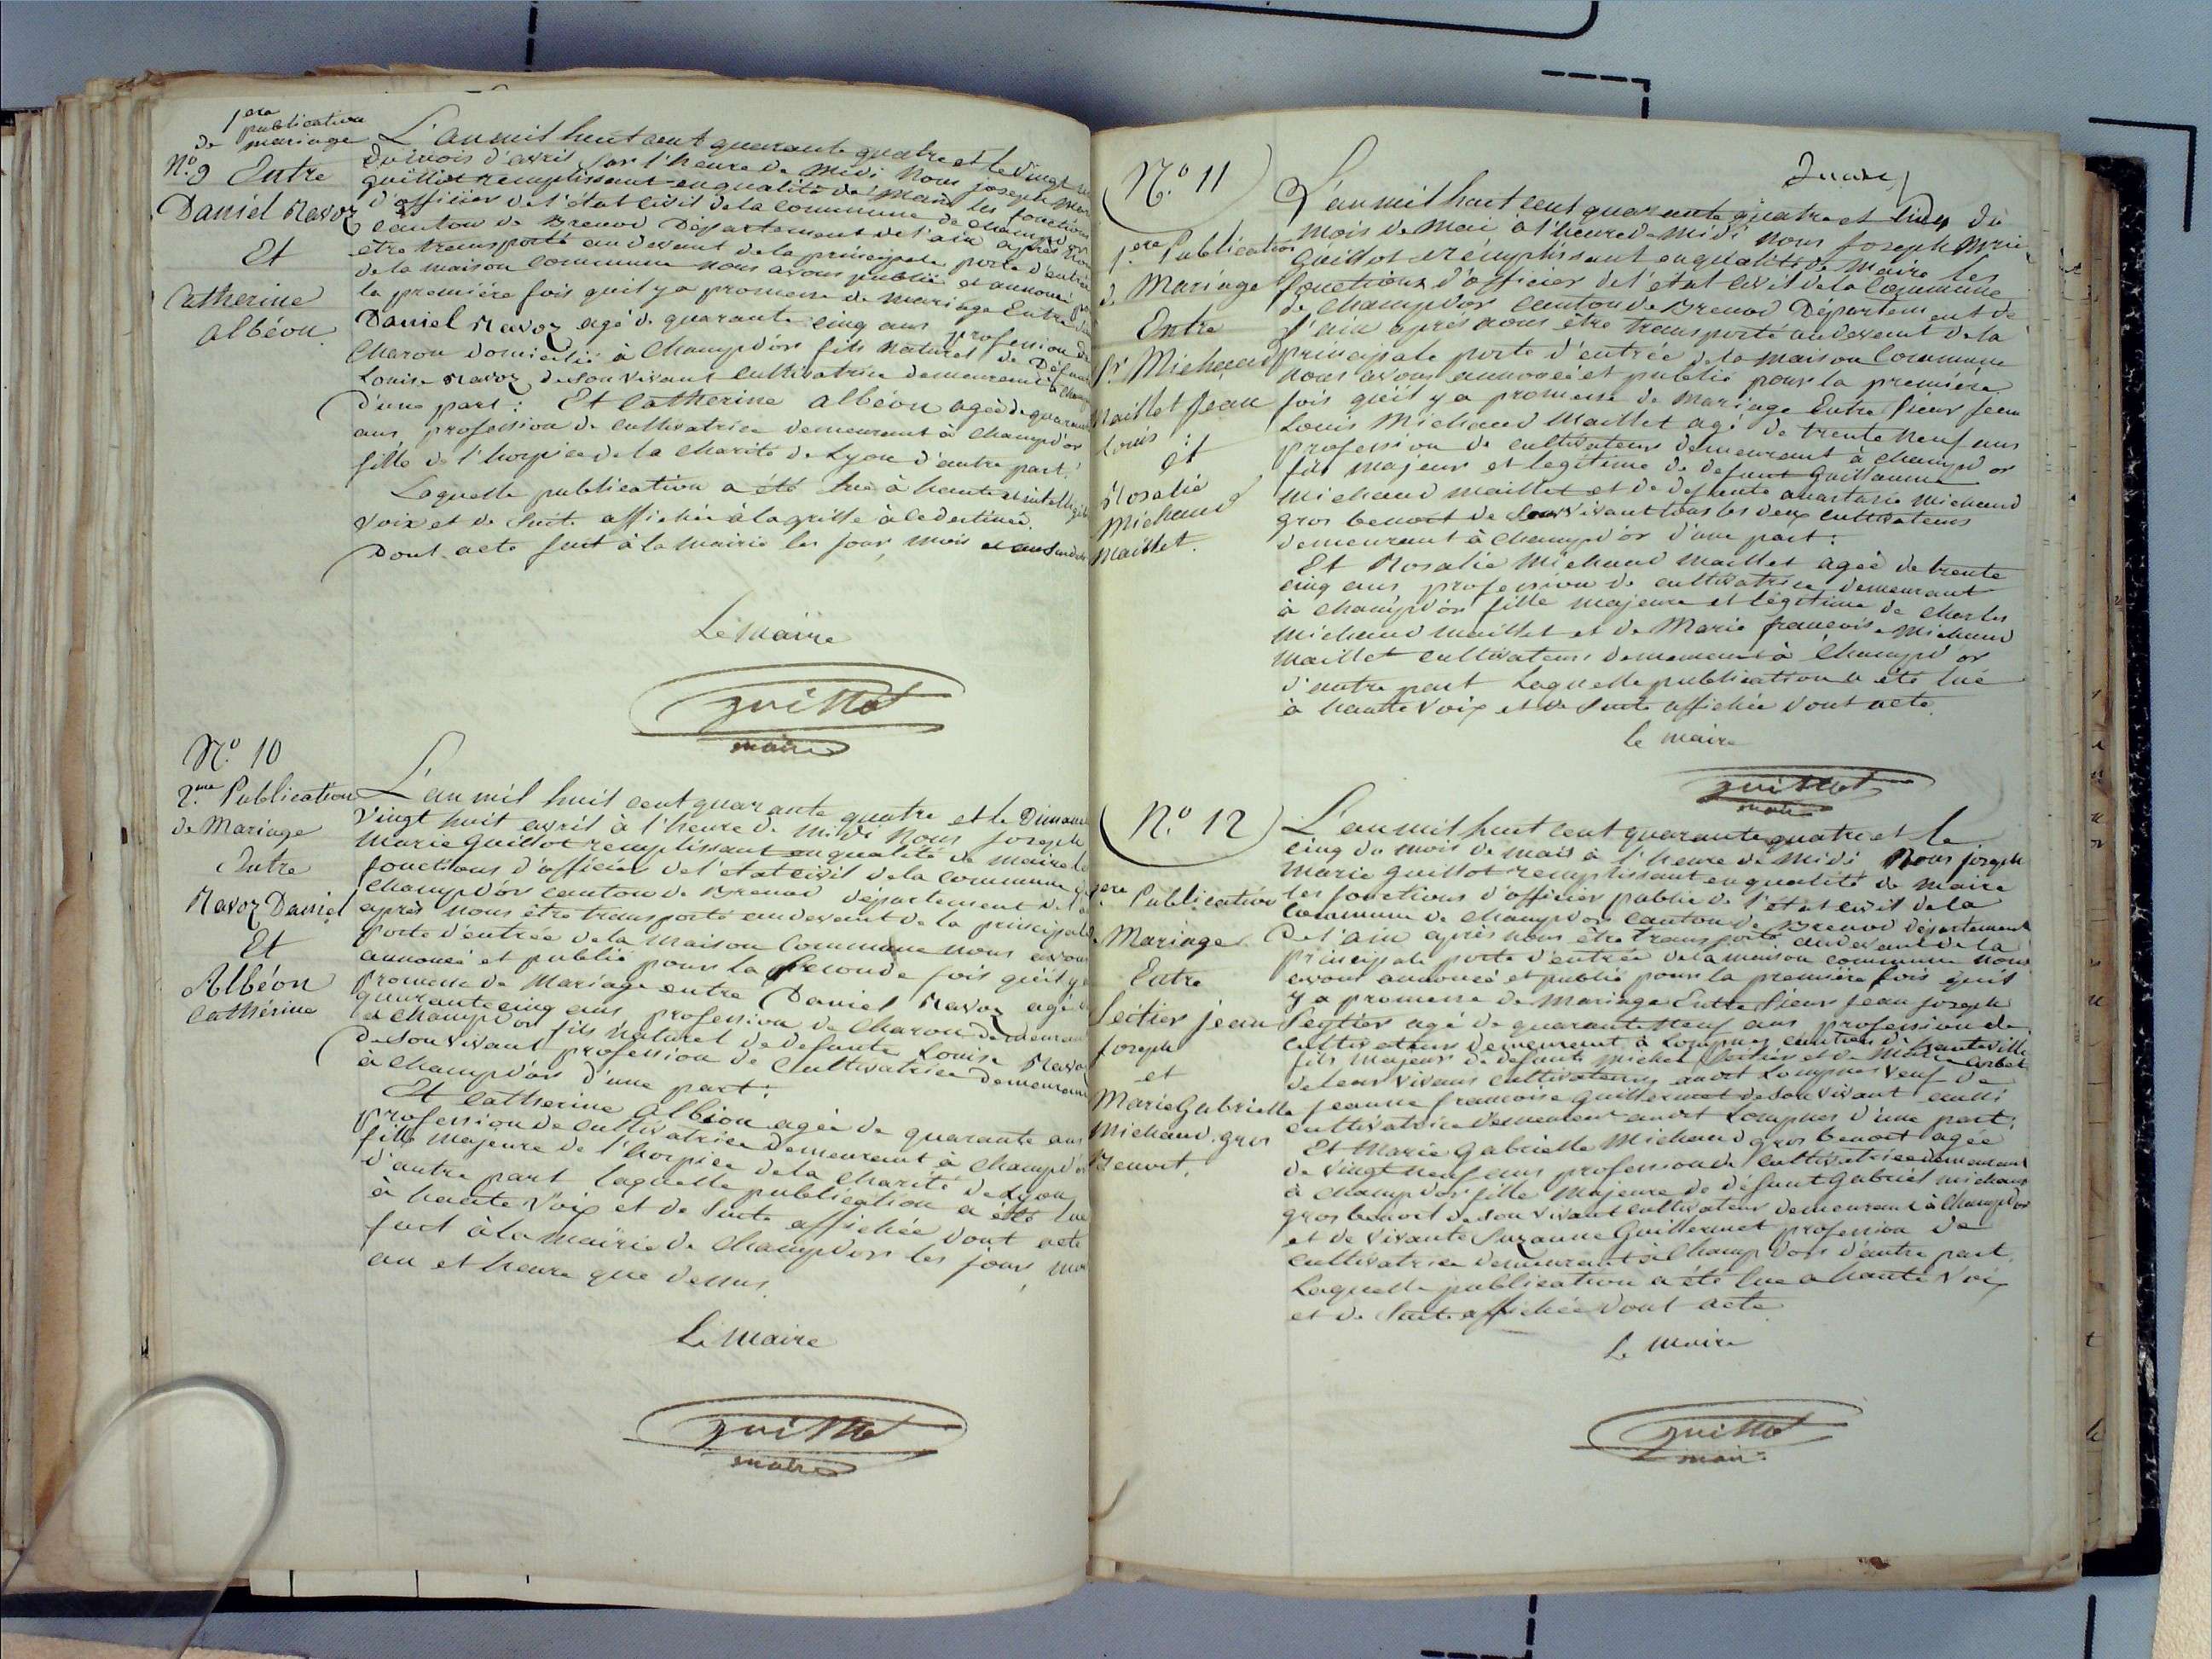 1ere
publication
de mariage
N.o 9 Entre
Daniel Ravoz
Et
Catherine
Albéon
L'an mil huit cent quarante quatre et le vingt
du mois d'avril sur l'heure de midi Nous joseph
guillot remplissant en qualité de Maire les fonctions
d'officier de l'état civil de la Commune de Champdor
canton de Brenod Département de l'ain après
être transporté au devant de la principale porte d'entrée
de la maison Commune nous avons publié et annoncé
la première fois quil y a promesse de mariage Entre
Daniel Ravoz agé de quarante cinq ans profession de
Charon domicilié à Champdor fils naturel de
Louise Ravoz de son vivant cultivatrice demeurant à
d'une part : Et Catherine albéon agée de quarante
ans profession de cultivatrice demeurant à Champdor
fille de l'hospice de la Charité de Lyon d'autre part
Laquelle publication a été lue à haute et
voix et de suite affichée à la grille à ce destinée.
Dont acte fait à la mairie les jour, mois et an
Le maire
guillot
maire
N.o 10
2.me Publication
de Mariage
Entre
Ravoz Daniel
Et
Albéon
Cathérine
L'an mil huit cent quarante quatre et le
vingt huit avril à l'heure de midi Nous joseph
Marie Guillot remplissant en qualité de maire
fonctions d'officier de l'état civil de la commune
Champdor canton de Brenod département de
après nous être transporté au devant de la principale
porte d'entrée de la maison Commune nous avons
annoncé et publié pour la seconde fois qu'il y
promesse de Mariage entre Daniel Ravoz agé
quarante cinq ans profession de Charon
à Champdor fils naturel de defunte Louise Ravoz
de son vivant profession de Cultivatrice demeurant
à Champdor d'une part :
Et Catherine Albéon agée de quarante ans
profession de cultivatrice demeurant à Champdor
fille majeure de l'hospice de la charité de Lyon
d'autre part laquelle publication a été lue
à haute voix et de suite affichée dont acte
fait à la mairie de Champdor les jour,
an et heure que dessus.
Le Maire
guillot
maire
N.o 11
1.ere Publication
de Mariage
Entre
Sr Michaud
Maillet Jean
louis
et
Rosalie
Michaud
Maillet.
L'an mil huit cent quarante quatre et cinq du
Mois de Mai à l'heure de midi nous Joseph Marie
guillot remplissant en qualité de Maire les
fonctions d'officier de l'état civil de la Commune
de Champdor canton de Brenod Département de
l'ain après nous être transporté au devant de la
principale porte d'entrée de la maison Commune
nous avons annoncé et publié pour la première
fois quil y a promesse de Mariage Entre sieur Jean
Louis Michaud Maillet agé de trente neuf ans
profession de cultivateur demeurant à Champdor
fils majeur et legitime de defunt Guillaume
Michaud maillet et de defunte anastasie michaud
gros benoit de leur vivant tous les deux cultivateurs
demeurant à Champdor d'une part :
Et Rosalie Michaud Maillet agée de trente
cinq ans profession de cultivatrice demeurant
à Champdor fille majeure et légitime de Charles
Michaud maillet et de Marie françoise Michaud
Maillet cultivateurs demeurant à Champdor
d'autre part Laquelle publication a été lue
à haute voix et de suite affichée dont acte.
le maire
guillot
maire
N.o 12
1.ere Publication
de Mariage
Entre
Seitier jean
Joseph
et
Marie Gabrielle
Michaud gros
Benoit.
L'an mil huit cent quarante quatre et le
cinq du mois de mais à l'heure de midi Nous joseph
Marie guillot remplissant en qualité de maire
les fonctions d'officier public de l'état civil de la
Commune de Champdor canton de Brenod département
de l'ain après nous être transporté au devant de la
principale porte d'entrée de la maison commune nous
avons annoncé et publié pour la première fois quil
y a promesse de Mariage Entre sieur jean joseph
agé de quarante neuf ans profession de
cultivateur demeurant à Lompnes canton de hauteville
fils majeur de défunts michel et de Marie
de leur vivans cultivateurs audit Lompnes veuf de
jeanne francoise Guillermet de son vivant aussi
cultivatrice demeurant audit Lompnes d'une part.
Et Marie Gabrielle Michaud gros benoit agée
de vingt neuf ans profession de Cultivatrice demeurant
à Champdor fille Majeure de défunt Gabriel michaud
gros benoit de son vivant cultivateur demeurant à Champdor
et de vivante Suzanne Guillermet profession de
cultivatrice demeurant à Champdor d'autre part.
Laquelle publication a été lue à haute voix
et de suite affichée dont acte
Le Maire
guillot
maire